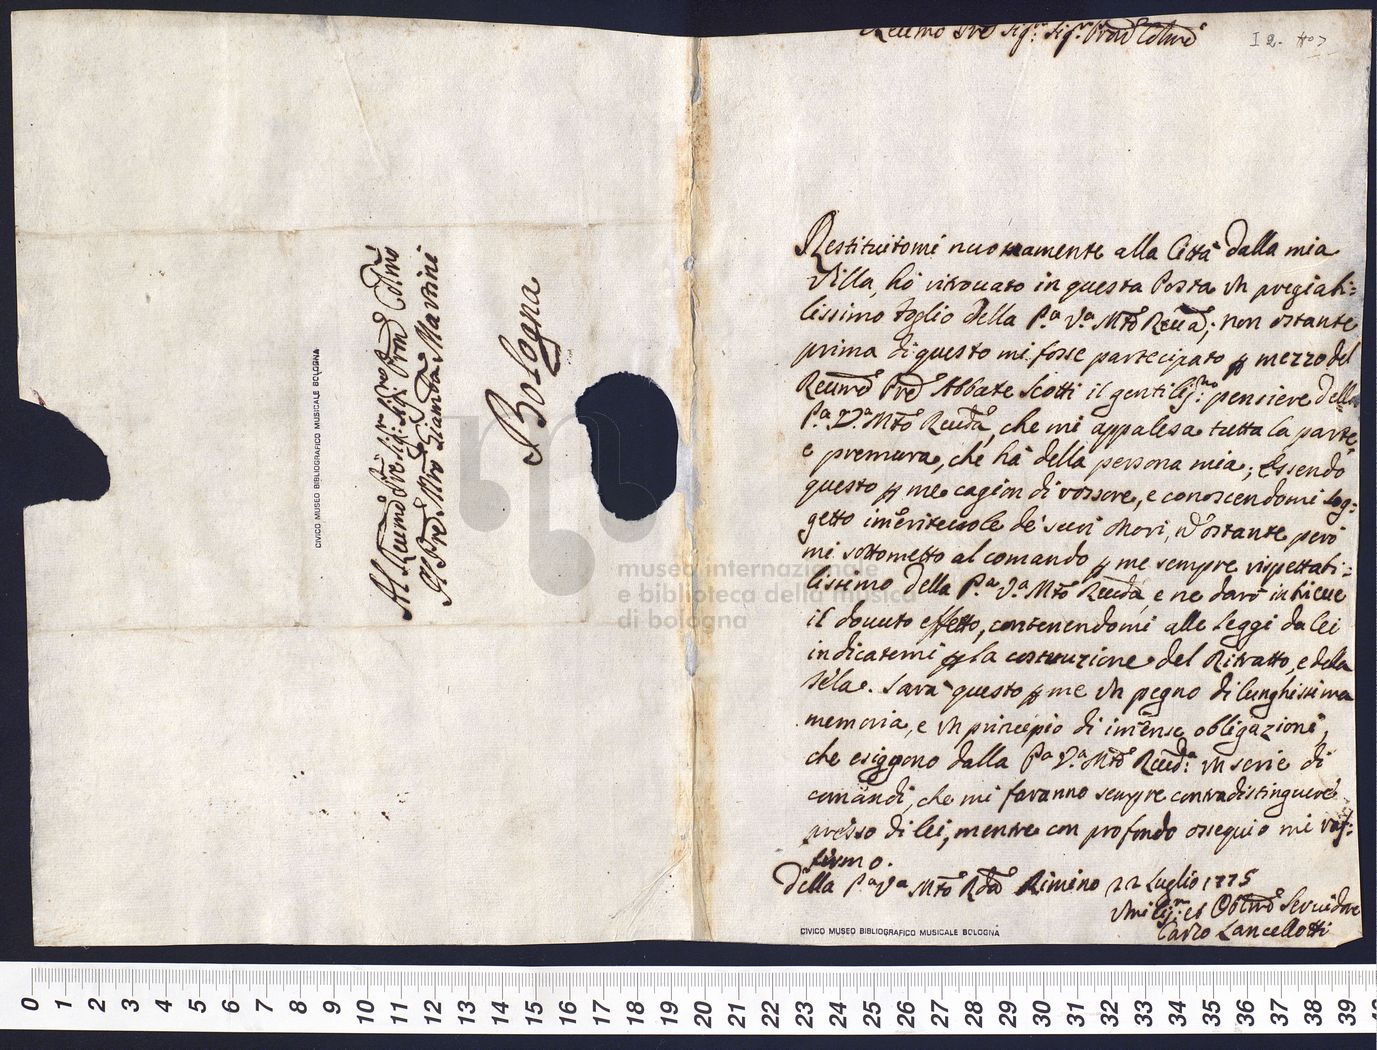 Al Reumo Pre Sig:r Sig:r Pron Colmo
Il Pre Mro Giambta Martini
Bologna
CIVICO MUSEO BIBLIOGRAFICO MUSICALE BOLOGNA
Reumo Pre Sig:r Sig:r Pron Colmo
I 2.
Restituitomi nuovamente alla Città dalla mia
Villa, hò ritrovato in questa Posta un pregiati=
lissimo foglio della P.a V.a Mto Reuda; non ostante
prima di questo mi fosse partecipato p mezzo del
Reumo Pre Abbate Scotti il gentilis:mo pensiere della
P.a V.a Mto Reuda, che mi appalesa tutta la parte,
e premura, che hà della persona mia; Essendo
questo p me cagion di rossore, e conoscendomi sog=
getto imeritevole de' suoi onori, nõ ostante però
mi sottometto al comando p me sempre rispettabi=
lissimo della P.a V.a Mto Reuda, e ne darò in breve
il dovuto effetto, contenendomi alle leggi da lei
indicatemi p la costruzione del Ritratto, e della
Tela. Sarà questo p me un pegno di lunghissima
memoria, e un principio di imense obligazioni,
che esiggono dalla P.a V.a Mto Reuda: un serie di
comandi, che mi faranno sempre contradistinguere
presso di lei, mentre con profondo ossequio mi raf=
fermo.
Della P.a V.a Mto Rda Rimino 22 Luglio 1775
Umilis:mo et Obblmo Servidore
Carlo Lancellotti
CIVICO MUSEO BIBLIOGRAFICO MUSICALE BOLOGNA
museo internazionale
e biblioteca della musica
di bologna
0 1 2 3 4 5 6 7 8 9 10 11 12 13 14 15 16 17 18 19 20 21 22 23 24 25 26 27 28 29 30 31 32 33 34 35 36 37 38 39